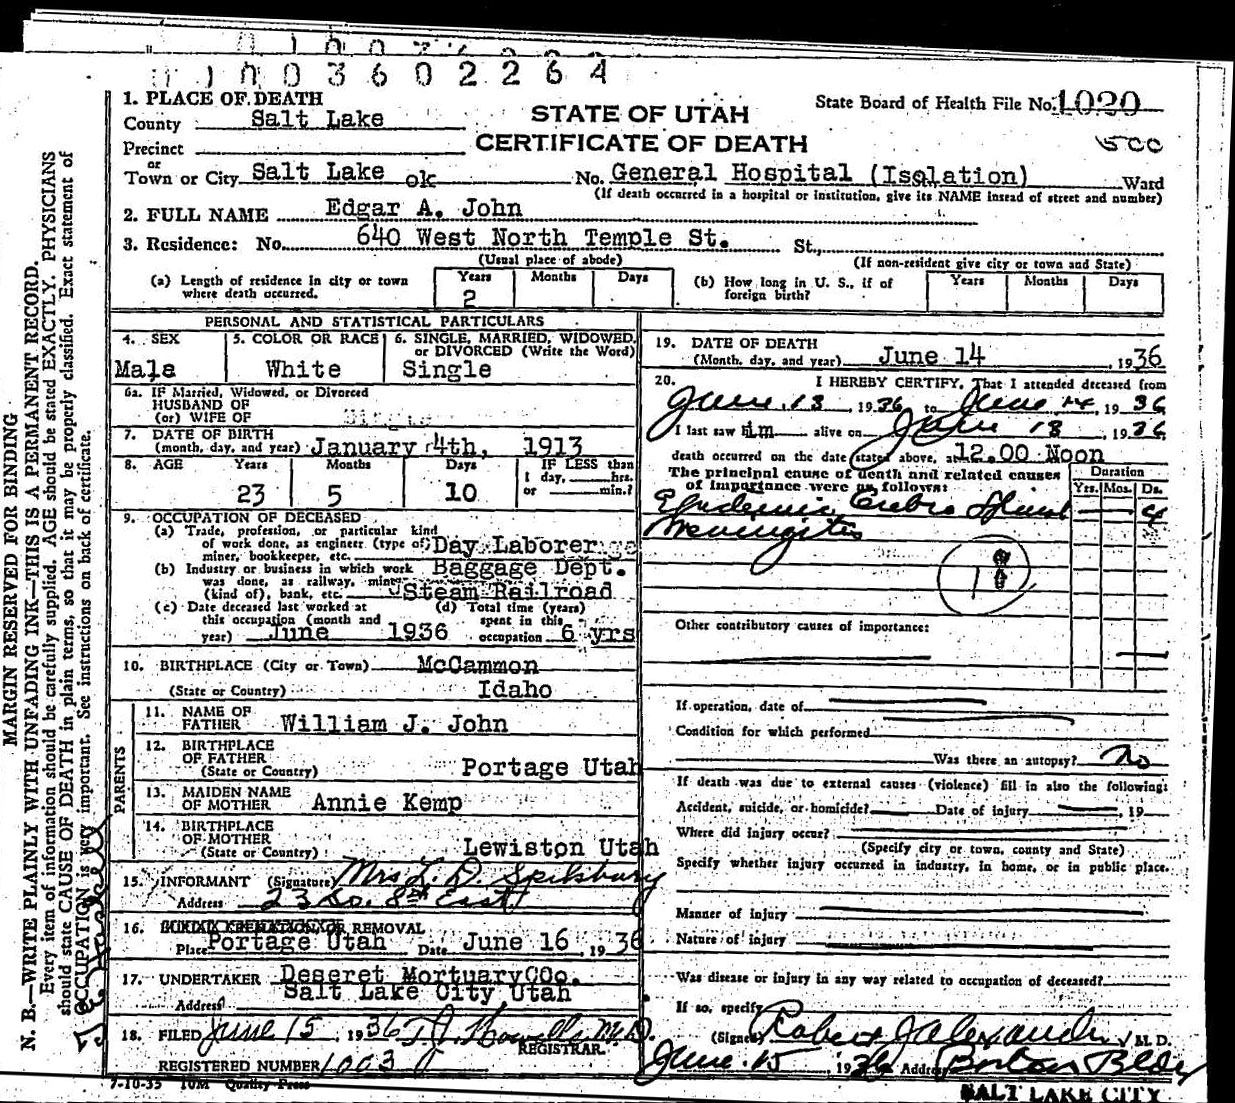 1003602264
1. PLACE OF DEATH
County Salt Lake
STATE OF UTAH
CERTIFICATE OF DEATH
State Board of Health File No. 1020
500
Precinct
or
Town or City Salt Lake ok No. General Hospital (Isolation) Ward
(If death occurred in a hospital or institution, give its NAME instead of street and number)
2. FULL NAME Edgar A. John
3. Residence: No. 640 West North Temple St. St.,
(Usual place of abode) (If non-resident give city or town and State)
(a) Length of residence in city or town where death occurred. Years 2 Months Days
(b) How long in U. S., if of foreign birth? Years Months Days
PERSONAL AND STATISTICAL PARTICULARS
4. SEX Male
5. COLOR OR RACE White
6. SINGLE, MARRIED, WIDOWED, or DIVORCED (Write the Word) Single
6a. IF Married, Widowed, or Divorced
HUSBAND OF
(or) WIFE OF Single
7. DATE OF BIRTH
(month, day, and year) January 4th, 1913
8. AGE Years 23 Months 5 Days 10 IF LESS than 1 day, hrs. or min.?
9. OCCUPATION OF DECEASED
(a) Trade, profession, or particular kind
of work done, as engineer (type of) Day Laborer
miner, bookkeeper, etc.
(b) Industry or business in which work Baggage Dept.
was done, as railway, mine
(kind of), bank, etc. Steam Railroad
(c) Date deceased last worked at this occupation (month and year) June 1936
(d) Total time (years) spent in this occupation 6 yrs
10. BIRTHPLACE (City or Town) McCammon
(State or Country) Idaho
PARENTS
11. NAME OF FATHER William J. John
12. BIRTHPLACE OF FATHER
(State or Country) Portage Utah
13. MAIDEN NAME OF MOTHER Annie Kemp
14. BIRTHPLACE OF MOTHER
(State or Country) Lewiston Utah
15. INFORMANT (Signature) Mrs L. D. Spilsbury
Address 23 So. 8th East
16. BURIAL CREMATION OR REMOVAL
Place Portage Utah Date June 16 1936
17. UNDERTAKER Deseret Mortuary COo.
Address Salt Lake City, Utah
18. FILED June 15, 1936 T. J. Howells M.D.
REGISTRAR
REGISTERED NUMBER 1003
7-10-35 10M Quality Press
19. DATE OF DEATH
(Month, day, and year) June 14, 1936
20. I HEREBY CERTIFY, That I attended deceased from
June 13, 1936 to June 14, 1936
I last saw him alive on June 13, 1936
death occurred on the date stated above, at 12.00 Noon
The principal cause of death and related causes
of importance were as follows:
Duration
Yrs. Mos. Ds.
Epidemic Cerebro Spinal 4
Meningitis
18
Other contributory causes of importance:
If operation, date of
Condition for which performed
Was there an autopsy? No
If death was due to external causes (violence) fill in also the following:
Accident, suicide, or homicide? Date of injury , 19
Where did injury occur?
(Specify city or town, county and State)
Specify whether injury occurred in industry, in home, or in public place.
Manner of injury
Nature of injury
Was disease or injury in any way related to occupation of deceased?
If so, specify
(Signed) Robert J Alexander, M. D.
June 15, 1936 Address Boston Bldg
SALT LAKE CITY
MARGIN RESERVED FOR BINDING
N. B.—WRITE PLAINLY WITH UNFADING INK—THIS IS A PERMANENT RECORD.
Every item of information should be carefully supplied. AGE should be stated EXACTLY. PHYSICIANS
should state CAUSE OF DEATH in plain terms, so that it may be properly classified. Exact statement of
OCCUPATION is very important. See instructions on back of certificate.